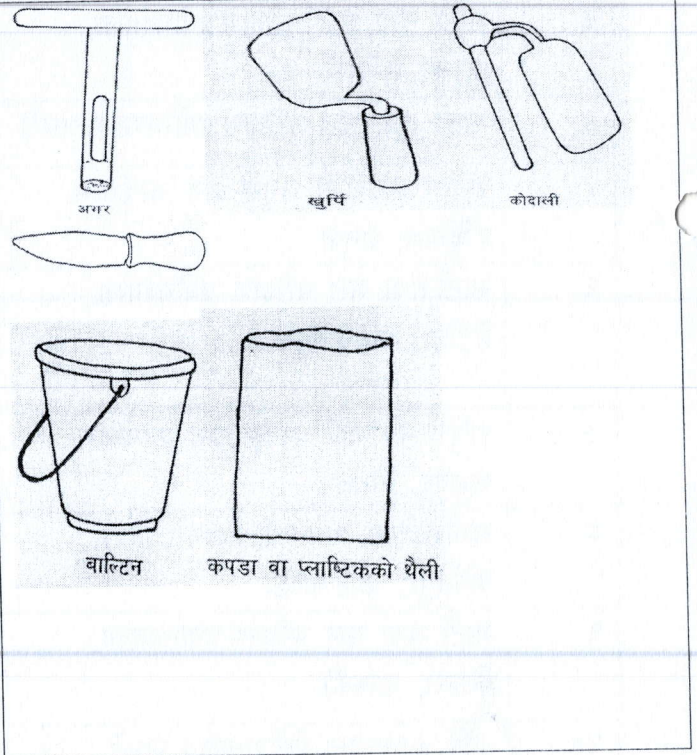 अगर
खुर्पि
कोदाली
बाल्टिन
कपडा वा प्लाष्टिकको थैली